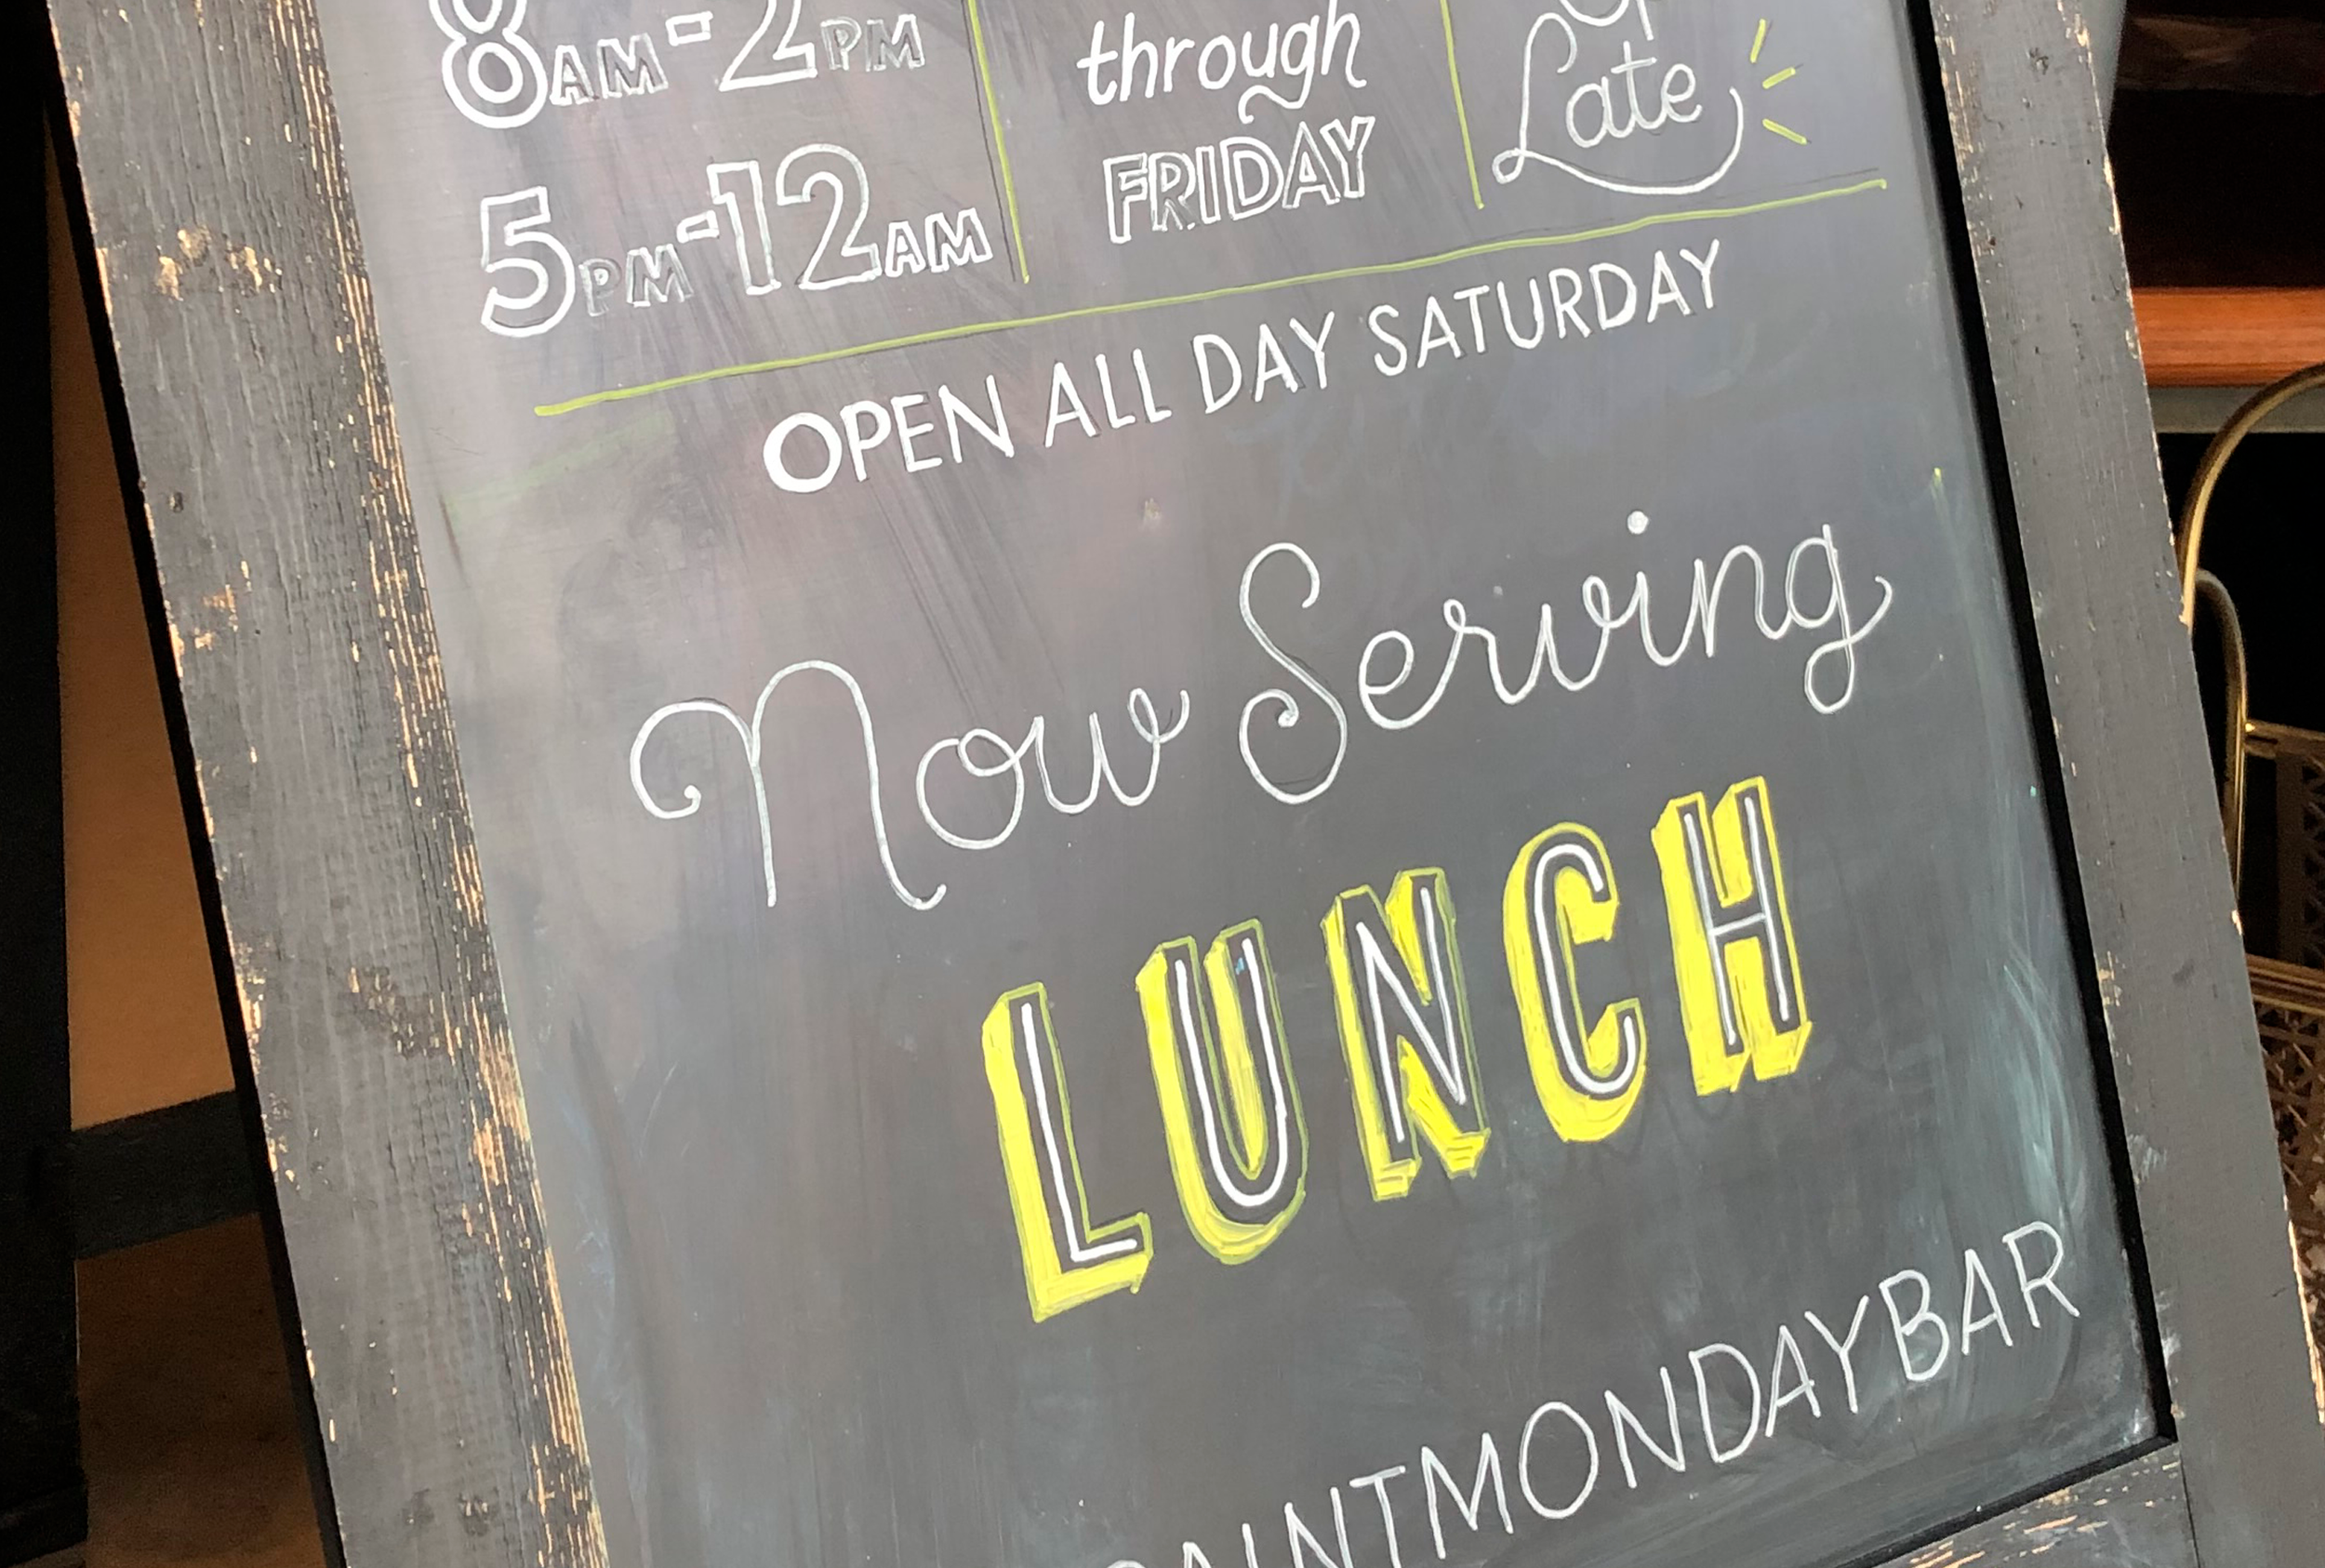 8AM-2PM
5PM-12AM
through
FRIDAY
Late
OPEN ALL DAY SATURDAY
Now Serving
LUNCH
AINTMONDAYBAR